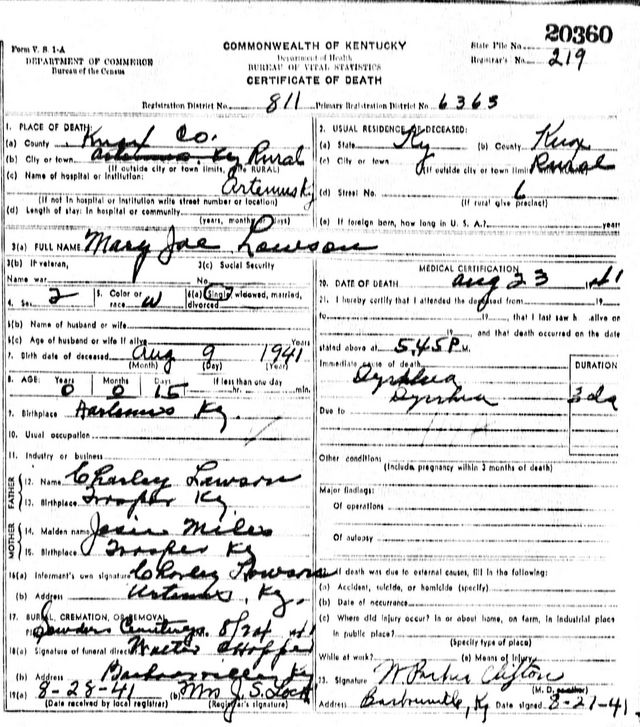 20360
Form V. S. 1-A
DEPARTMENT OF COMMERCE
Bureau of the Census
COMMONWEALTH OF KENTUCKY
Department of Health
BUREAU OF VITAL STATISTICS
CERTIFICATE OF DEATH
State File No.
Registrar's No. 219
Registration District No. 811 Primary Registration District No. 6363
1. PLACE OF DEATH:
(a) County Knox Co.
(b) City or town Artemus. Ky Rural
(If outside city or town limits, write RURAL)
(c) Name of hospital or institution:
Artemus Ky
(If not in hospital or institution write street number or location)
(d) Length of stay: In hospital or community
(years, months or days)
2. USUAL RESIDENCE OF DECEASED:
(a) State Ky (b) County Knox
(c) City or town Rural
(If outside city or town limits
(d) Street No. 6
(If rural give precinct)
(e) If foreign born, how long in U. S. A.? years
3(a) FULL NAME Mary Joe Lawson
3(b) If veteran,
Name war
3(c) Social Security
No.
4. Sex 2 5. Color or race W 6(a) Single, widowed, married, divorced
6(b) Name of husband or wife
6(c) Age of husband or wife if alive Years
7. Birth date of deceased Aug 9 1941
(Month) (Day) (Year)
8. AGE: Years Months Days If less than one day
0 0 15 hr. min.
9. Birthplace Ky.
10. Usual occupation
11. Industry or business
FATHER
12. Name Charley Lawson
13. Birthplace Trosper Ky
MOTHER
14. Maiden name Josie Miles
15. Birthplace Trosper Ky
16(a) Informant's own signature Charley Lawson
(b) Address Artemus, Ky.
17. BURIAL, CREMATION, OR REMOVAL
Cemetery 8/24 41
18(a) Signature of funeral director Walter Hopper
(b) Address Barbourville Ky
19(a) 8-28-41 (b) Mrs J. S. Lock
(Date received by local registrar) (Registrar's signature)
MEDICAL CERTIFICATION
20. DATE OF DEATH Aug 23 41
21. I hereby certify that I attended the deceased from 19
to 19 , that I last saw h alive on
19 , and that death occurred on the date
stated above at 5,45 P M.
Immediate cause of death
DURATION
3 da
Due to
Other conditions
(Include pregnancy within 3 months of death)
Major findings:
Of operations
Of autopsy
If death was due to external causes, fill in the following:
(a) Accident, suicide, or homicide (specify)
(b) Date of occurrence
(c) Where did injury occur? In or about home, on farm, in industrial place
in public place?
(Specify type of place)
While at work? (e) Means of Injury
23. Signature W Parker Clifton
(M. D. or other)
Address Barbourville, Ky Date signed 8-27-41